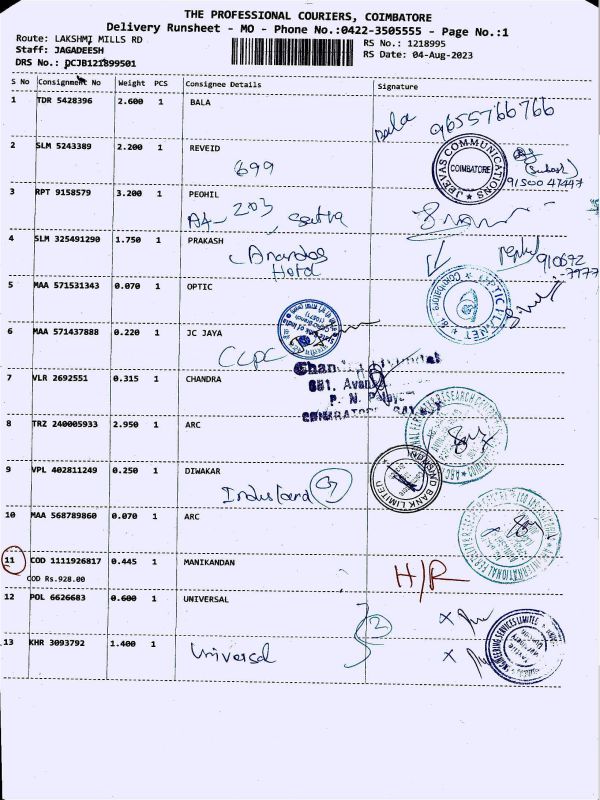 THE PROFESSIONAL COURIERS, COIMBATORE
Delivery Runsheet - MO - Phone No.:0422-3505555 - Page No.:1
Route: LAKSHMI MILLS RD
Staff: JAGADEESH
DRS No.: DCJB121899501
RS No.: 1218995
RS Date: 04-Aug-2023
S No Consignment No Weight PCS Consignee Details Signature
1 TDR 5428396 2.600 1 BALA
Bala 9655766766
2 SLM 5243389 2.200 1 REVEID
699
JEEVAS COMMUNICATIONS
COIMBATORE
(Subash)
91500 47447
3 RPT 9158579 3.200 1 PEOHIL
A4-203
4 SLM 325491290 1.750 1 PRAKASH
Anandas
Hotel
910672
-7977
5 MAA 571531343 0.070 1 OPTIC
OPTIC PLANET
Coimbatore
6 MAA 571437888 0.220 1 JC JAYA
CCPC
7 VLR 2692551 0.315 1 CHANDRA
681, Avan
P. N. Palay
COIMBATORE
8 TRZ 240005933 2.950 1 ARC
9 VPL 402811249 0.250 1 DIWAKAR
INDUSIND BANK LIMITED
10 MAA 568789860 0.070 1 ARC
11 COD 1111926817 0.445 1 MANIKANDAN
COD Rs.928.00
H/R
12 POL 6626683 0.600 1 UNIVERSAL
2
13 KHR 3093792 1.400 1
Universal
ENGINEERING SERVICES LIMITED